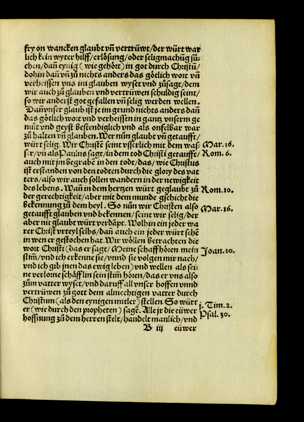 fry on wancken glaubt vñ vertrüwt/ der würt war
lich kein wyter hilff/ erlösung/ oder seligmachũg sů
chen/ dañ eynig (wie gehört) in got durch Christũ/
dohin dañ vñ zů nichts anders das götlich wort vñ
verheissen vns im glauben wyset vnd zůsagt/ dem
wir auch zů glauben vnd vertrüwen schuldig seind/
so wir anderst got gefallen vñ selig werden wellen.
Dañ vnser glaub ist ye in vnd zů nichts anders dañ
das götlich wort vnd verheissen in gantz vnserm ge
müt vnd geyst bestendiglich vnd als onfelbar war
zů halten vñ glauben. Wer nun glaubt vñ getaufft/
würt selig. Wir Christẽ seint vsserlich mit dem was
ser/ vñ als Paulus sagt/ in dem tod Christi getaufft/
auch mit jm begrabẽ in den tod/ das/ wie Christus
ist erstanden von den todten durch die glory des vat
ters/ also wir auch sollen wandern in der newigkeit
des lebens. Wañ in dem hertzen würt geglaubt zů
der gerechtigkeit/ aber mit dem mundt gschicht die
bekennung zů dem heyl. So nun wir Christen also
getaufft glauben vnd bekennen/ seint wir selig/ der
aber nit glaubt würt verdāpt. Wolhin ein jeder wa
rer Christ vrteyl selbs/ dañ auch ein jeder würt sehẽ
in wen er gestochen hat. Wir wöllen betrachten die
wort Christi (das er sagt) Meine schaff hören mein
stim/ vnd ich erkenne sie/ vnnd sie volgen mir nach/
vnd ich gib jnen das ewig leben) vnd wellen als sei
ne verlorne schäff im sein stim hören/ das er vns also
zům vatter wyset/ vnd daruff all vnser hoffen vnnd
vertrüwen zů gott dem almechtigen vatter durch
Christum (als den eynigen mitler) stellen. So würt
er (wie durch den propheten) sagẽ. Alle jr die eüwer
hoffnung zů dem herren stelt/ handelt manlich/ vnd
B iij eüwer
Mar. 16.
Rom. 6.
Rom. 10.
Mar. 16.
Joan. 10.
j. Tim. 2.
Psal. 30.